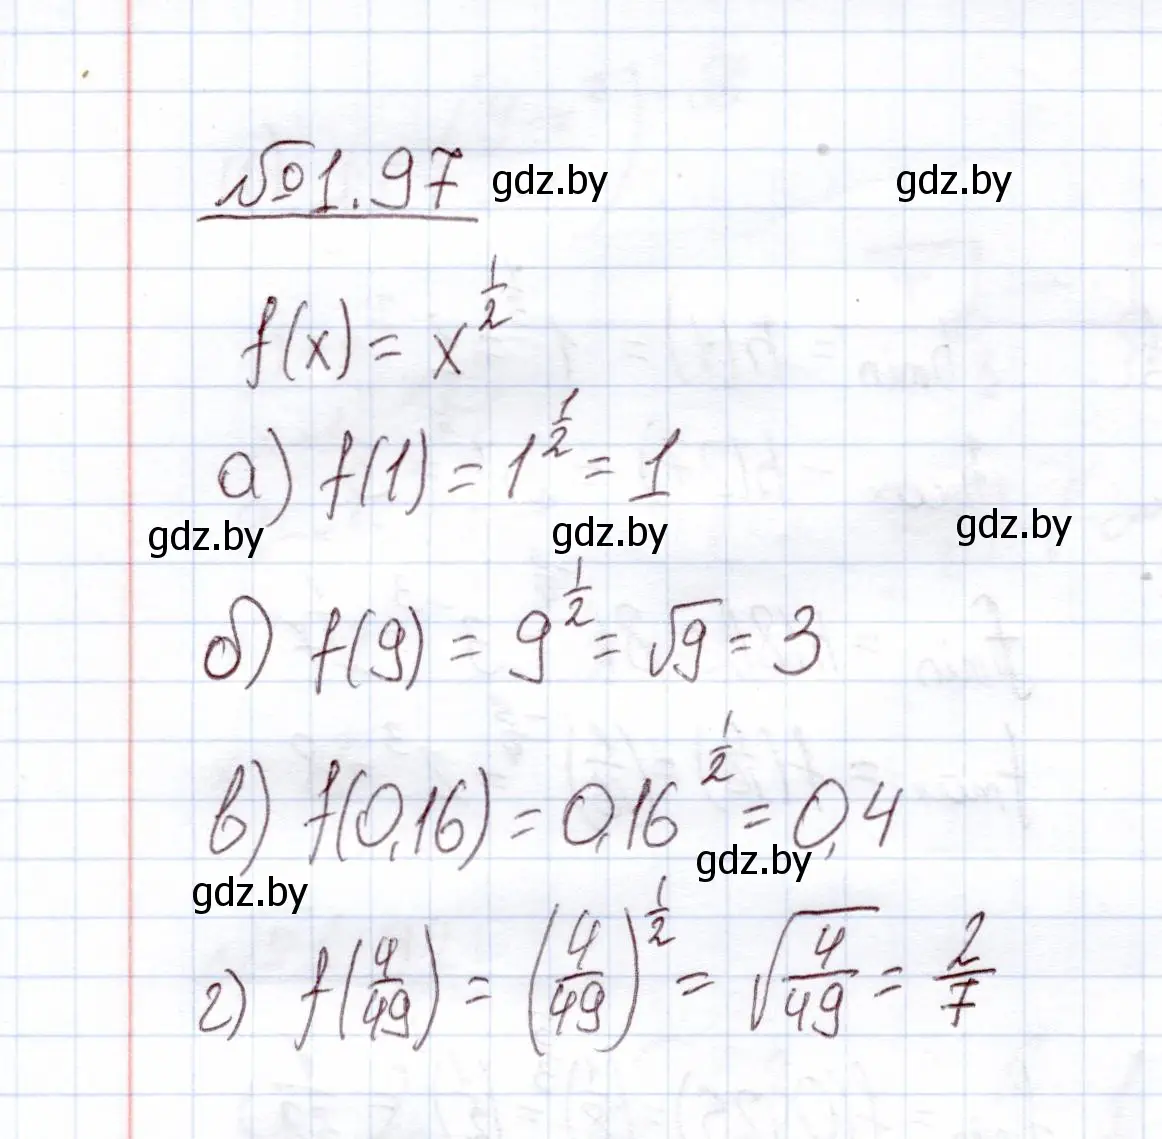 №1.97 gdz.by gdz.by
f(x) = x^{1/2}
а) f(1) = 1^{1/2} = 1
gdz.by gdz.by gdz.by
б) f(9) = 9^{1/2} = √9 = 3
в) f(0,16) = 0,16^{1/2} = 0,4
gdz.by gdz.by
г) f(4/49) = (4/49)^{1/2} = √(4/49) = 2/7